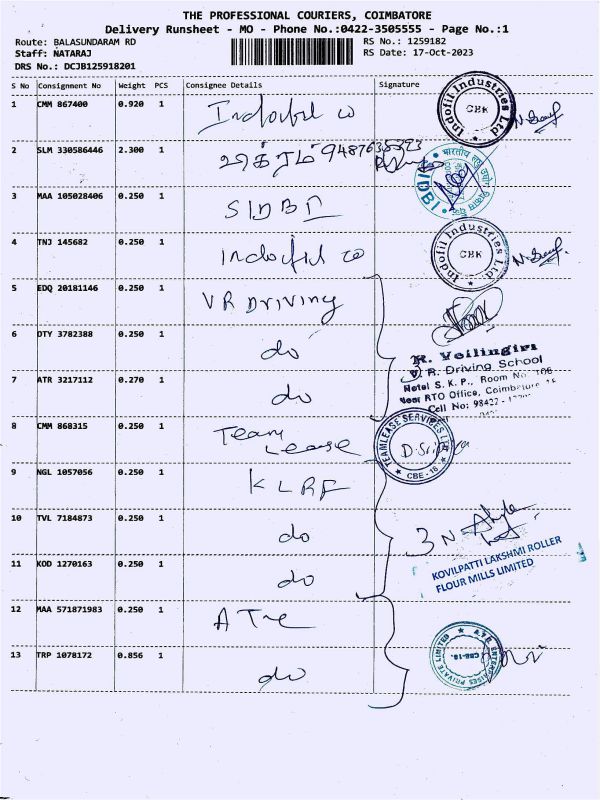 THE PROFESSIONAL COURIERS, COIMBATORE
Delivery Runsheet - MO - Phone No.:0422-3505555 - Page No.:1
Route: BALASUNDARAM RD
RS No.: 1259182
Staff: NATARAJ
RS Date: 17-Oct-2023
DRS No.: DCJB125918201
S No Consignment No Weight PCS Consignee Details Signature
1 CMM 867400 0.920 1 Indofil co
Indofil Industries Ltd CBK
2 SLM 330586446 2.300 1
SIDBI
3 MAA 105028406 0.250 1 SIDBI
4 TNJ 145682 0.250 1 Indofil co
Indofil Industries Ltd CBK
5 EDQ 20181146 0.250 1 VR Driving
6 DTY 3782388 0.250 1 do
R. Veilingiri
V. R. Driving School
7 ATR 3217112 0.270 1 do
3
Hotel S. K. P., Room No. 106
Near RTO Office, Coimbatore
Cell No: 98422 -
8 CMM 868315 0.250 1 Team Lease
TEAMLEASE SERVICES LTD CBE - 18
9 NGL 1057056 0.250 1 KLRF
10 TVL 7184873 0.250 1 do
3
11 KOD 1270163 0.250 1 do
KOVILPATTI LAKSHMI ROLLER
FLOUR MILLS LIMITED
12 MAA 571871983 0.250 1 ATE
13 TRP 1078172 0.856 1 do
A.T.E. ENTERPRISES PRIVATE LIMITED CBE-18.